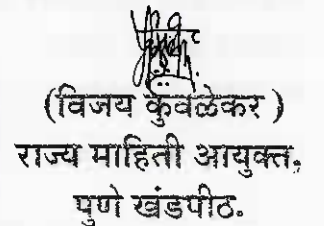 (विजय कुवळेकर )
राज्य माहिती आयुक्त.
पुणे खंडपीठ.